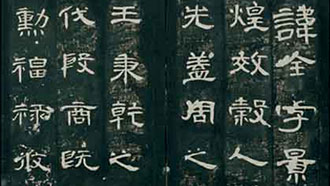 諱全字景
煌效穀人
先蓋周之
王秉乾之
伐殷商既
勳福祿攸